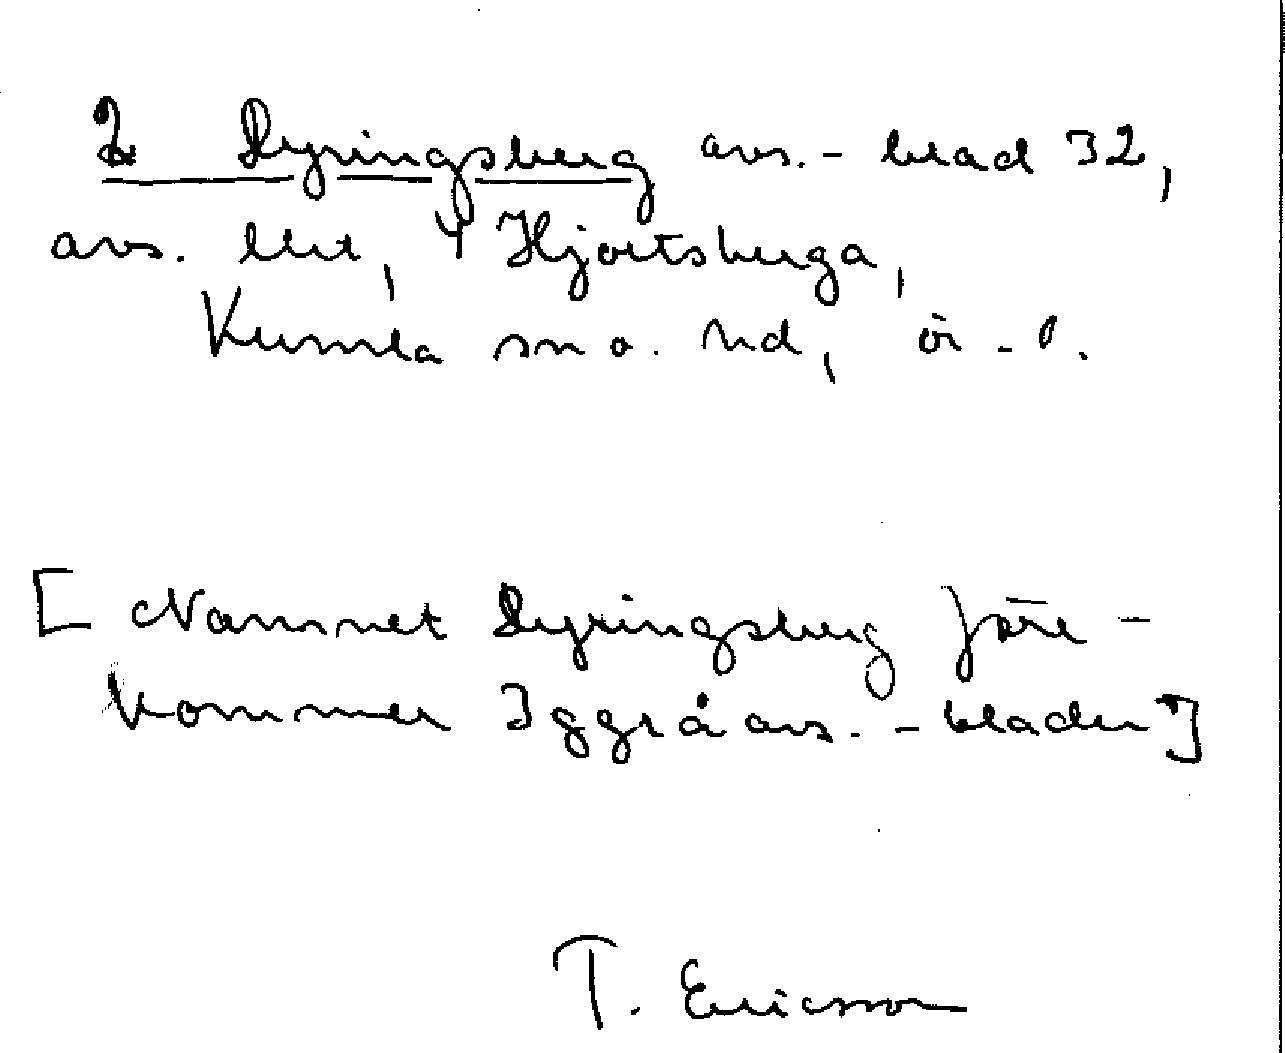 Dyringsberg avs.-blad 32,
avs. litt, 4 Hjortsberga,
Kumla sn o. hd, ör.-l.
[Namnet Dyringsberg före-
kommer 3 ggr å avs.-bladen]
T. Ericsson